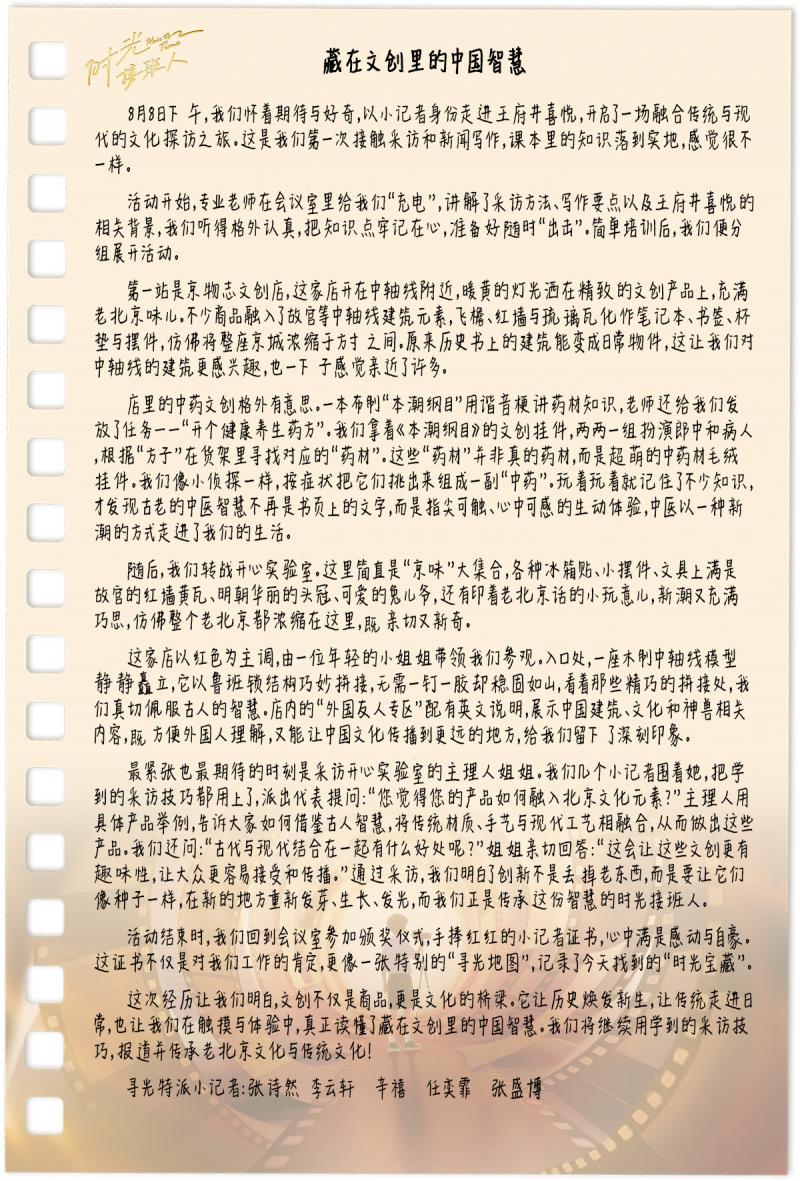 时光
接班人
藏在文创里的中国智慧
8月8日下 午,我们怀着期待与好奇,以小记者身份走进王府井喜悦,开启了一场融合传统与现
代的文化探访之旅.这是我们第一次接触采访和新闻写作,课本里的知识落到实地,感觉很不
一样.
活动开始,专业老师在会议室里给我们“充电”,讲解了采访方法、写作要点以及王府井喜悦的
相关背景,我们听得格外认真,把知识点牢记在心,准备好随时“出击”.简单培训后,我们便分
组展开活动.
第一站是京物志文创店,这家店开在中轴线附近,暖黄的灯光洒在精致的文创产品上,充满
老北京味儿.不少商品融入了故宫等中轴线建筑元素,飞檐、红墙与琉璃瓦化作笔记本、书签、杯
垫与摆件,仿佛将整座京城浓缩于方寸 之间.原来历史书上的建筑能变成日常物件,这让我们对
中轴线的建筑更感兴趣,也一下 子感觉亲近了许多.
店里的中药文创格外有意思.一本布制“本潮纲目”用谐音梗讲药材知识,老师还给我们发
放了任务——“开个健康养生药方”.我们拿着《本潮纲目》的文创挂件,两两一组扮演郎中和病人
,根据“方子”在货架里寻找对应的“药材”.这些“药材”并非真的药材,而是超萌的中药材毛绒
挂件.我们像小侦探一样,按症状把它们挑出来组成一副“中药”.玩着玩着就记住了不少知识,
才发现古老的中医智慧不再是书页上的文字,而是指尖可触、心中可感的生动体验,中医以一种新
潮的方式走进了我们的生活.
随后,我们转战开心实验室.这里简直是“京味”大集合,各种冰箱贴、小摆件、文具上满是
故宫的红墙黄瓦、明朝华丽的头冠、可爱的兔儿爷,还有印着老北京话的小玩意儿,新潮又充满
巧思,仿佛整个老北京都浓缩在这里,既 亲切又新奇.
这家店以红色为主调,由一位年轻的小姐姐带领我们参观.入口处,一座木制中轴线模型
静静矗立,它以鲁班锁结构巧妙拼接,无需一钉一胶却稳固如山,看着那些精巧的拼接处,我
们真切佩服古人的智慧.店内的“外国友人专区”配有英文说明,展示中国建筑、文化和神兽相关
内容,既 方便外国人理解,又能让中国文化传播到更远的地方,给我们留下 了深刻印象.
最紧张也最期待的时刻是采访开心实验室的主理人姐姐.我们几个小记者围着她,把学
到的采访技巧都用上了,派出代表提问:“您觉得您的产品如何融入北京文化元素?”主理人用
具体产品举例,告诉大家如何借鉴古人智慧,将传统材质、手艺与现代工艺相融合,从而做出这些
产品.我们还问:“古代与现代结合在一起有什么好处呢?”姐姐亲切回答:“这会让这些文创更有
趣味性,让大众更容易接受和传播.”通过采访,我们明白了创新不是丢掉老东西,而是要让它们
像种子一样,在新的地方重新发芽、生长、发光,而我们正是传承这份智慧的时光接班人.
活动结束时,我们回到会议室参加颁奖仪式,手捧红红的小记者证书,心中满是感动与自豪.
这证书不仅是对我们工作的肯定,更像一张特别的“寻光地图”,记录了今天找到的“时光宝藏”.
这次经历让我们明白,文创不仅是商品,更是文化的桥梁.它让历史焕发新生,让传统走进日
常,也让我们在触摸与体验中,真正读懂了藏在文创里的中国智慧.我们将继续用学到的采访技
巧,报道并传承老北京文化与传统文化!
寻光特派小记者:张诗然 李云轩 辛禧 任奕霏 张盛博